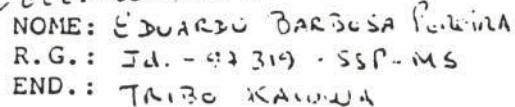 NOME: EDUARDO BARBOSA PEREIRA
R.G.: Id. - 97 319 - SSP-MS
END.: TRIBO KAIOWA